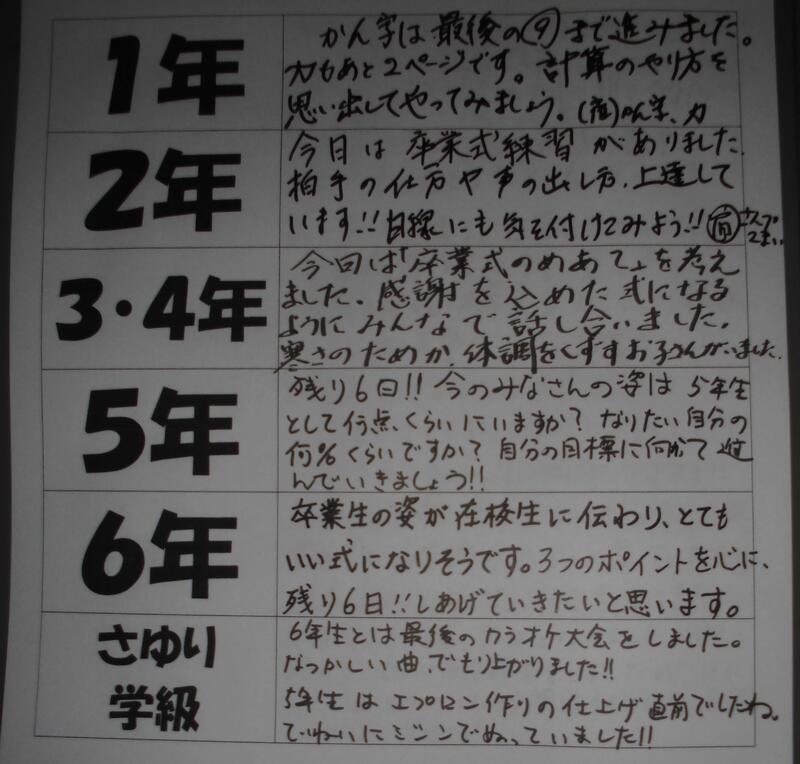 1年
かん字は最後の㋟まで進みました。
力もあと2ページです。計算のやり方を
思い出してやってみましょう。(宿)かん字、力
2年
今日は卒業式練習がありました。
拍手の仕方や声の出し方、上達して
います!!目線にも気を付けてみよう!!宿
3・4年
今回は「卒業式のめあて」を考え
ました。感謝を込めた式になる
ようにみんなで話し合いました。
寒さのためか、体調をくずすお子さんがいました。
5年
残り6日!!今のみなさんの姿は5年生
として何点くらいにいますか?なりたい自分の
何%くらいですか?自分の目標に向かって進
んでいきましょう!!
6年
卒業生の姿が在校生に伝わり、とても
いい式になりそうです。3つのポイントを心に、
残り6日!!しあげていきたいと思います。
さゆり
学級
6年生とは最後のカラオケ大会をしました。
なつかしい曲でもり上がりました!!
5年生はエプロン作りの仕上げ直前でしたね。
ていねいにミシンでぬっていました!!